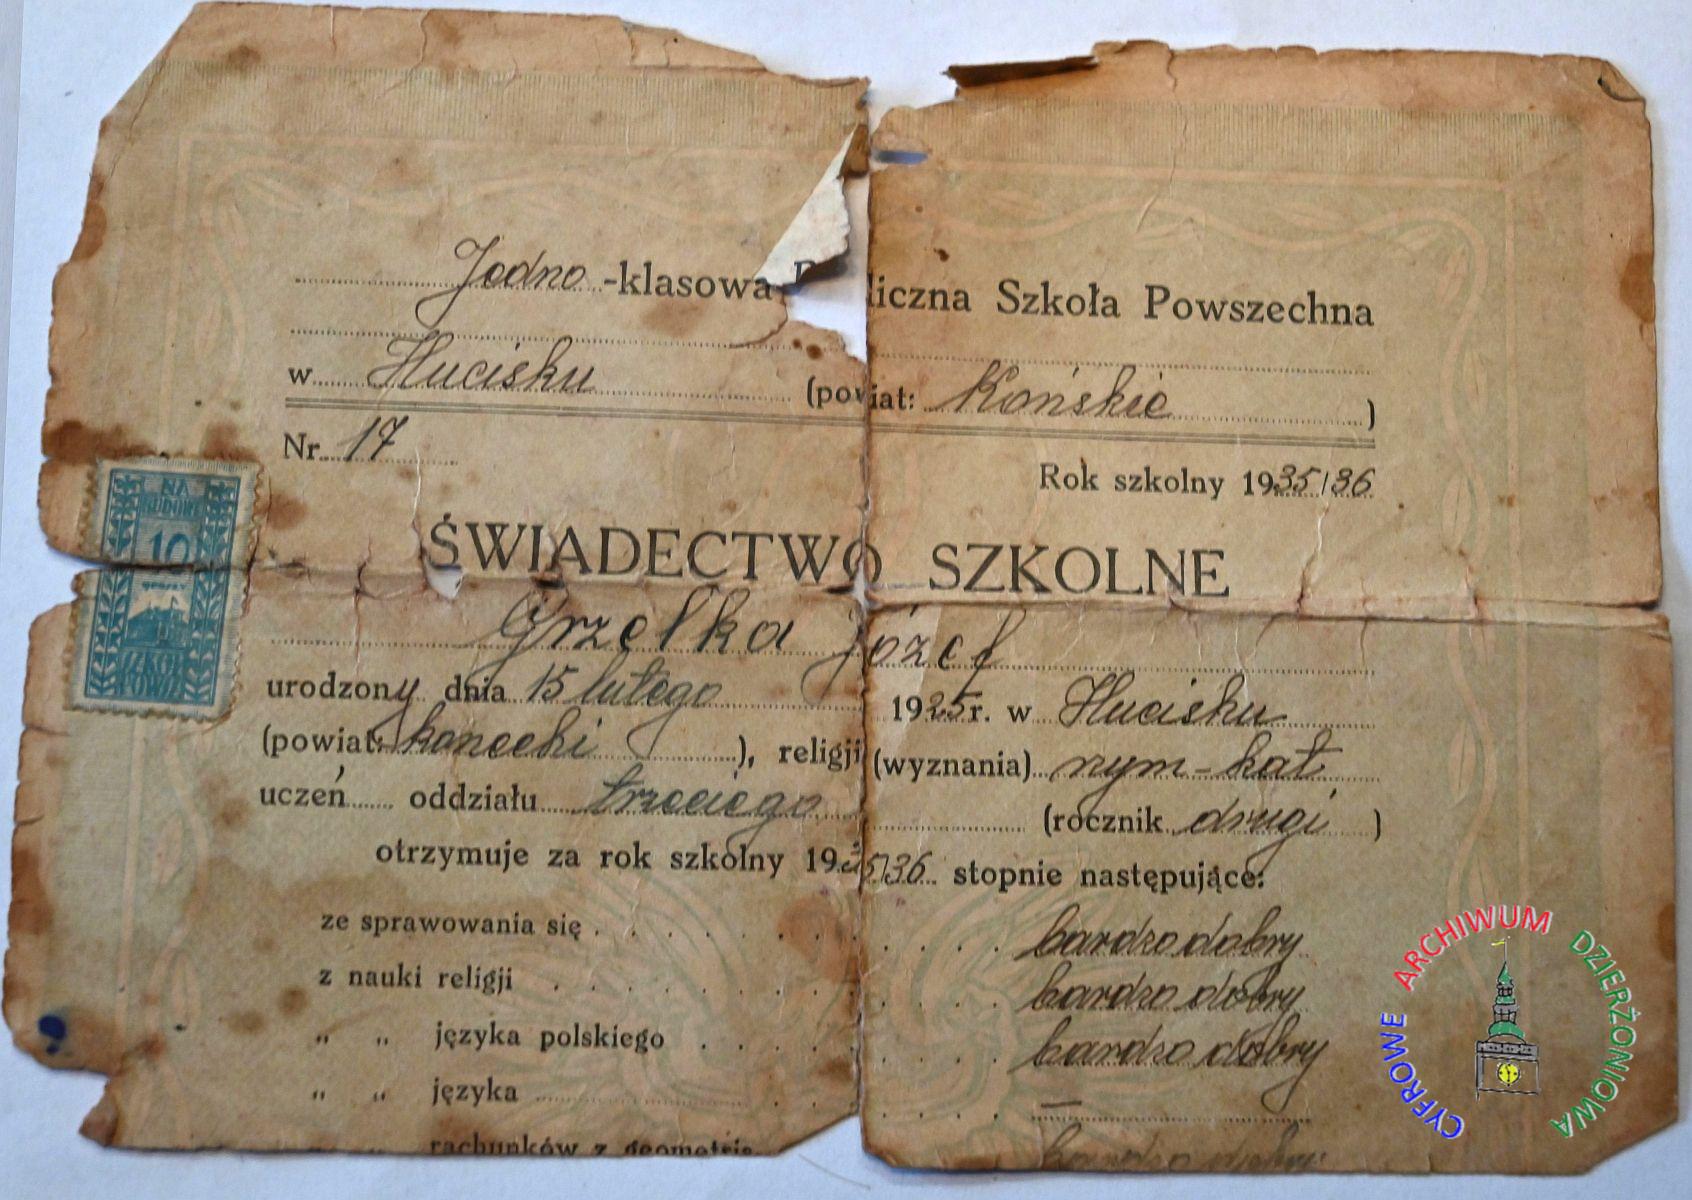 Jedno-klasowa Publiczna Szkoła Powszechna
w Hucisku (powiat: Końskie)
Nr 17
Rok szkolny 1935/36
NA
BUDOWĘ
10
GROSZY
SZKÓŁ
POWSZ
ŚWIADECTWO SZKOLNE
Grzelka Józef
urodzony dnia 15 lutego 1925 r. w Hucisku
(powiat: konecki), religji (wyznania) rzym-kat
uczeń oddziału trzeciego (rocznik drugi)
otrzymuje za rok szkolny 1935/36 stopnie następujące:
ze sprawowania się . . . . . . . . bardzo dobry
z nauki religji . . . . . . . . bardzo dobry
„ „ języka polskiego . . . . . . . bardzo dobry
„ „ języka . . . . . . —
rachunków z geometrją bardzo dobry
CYFROWE ARCHIWUM DZIERŻONIOWA